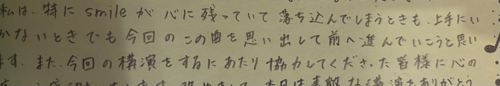 私は、特にsmileが心に残っていて落ち込んでしまうときも、上手にい
かないときでも今回のこの曲を思い出して前へ進んでいこうと思い
ます。また、今回の構演をするにあたり協力してくださった皆様に心の
本日は素敵な構演をありがとう